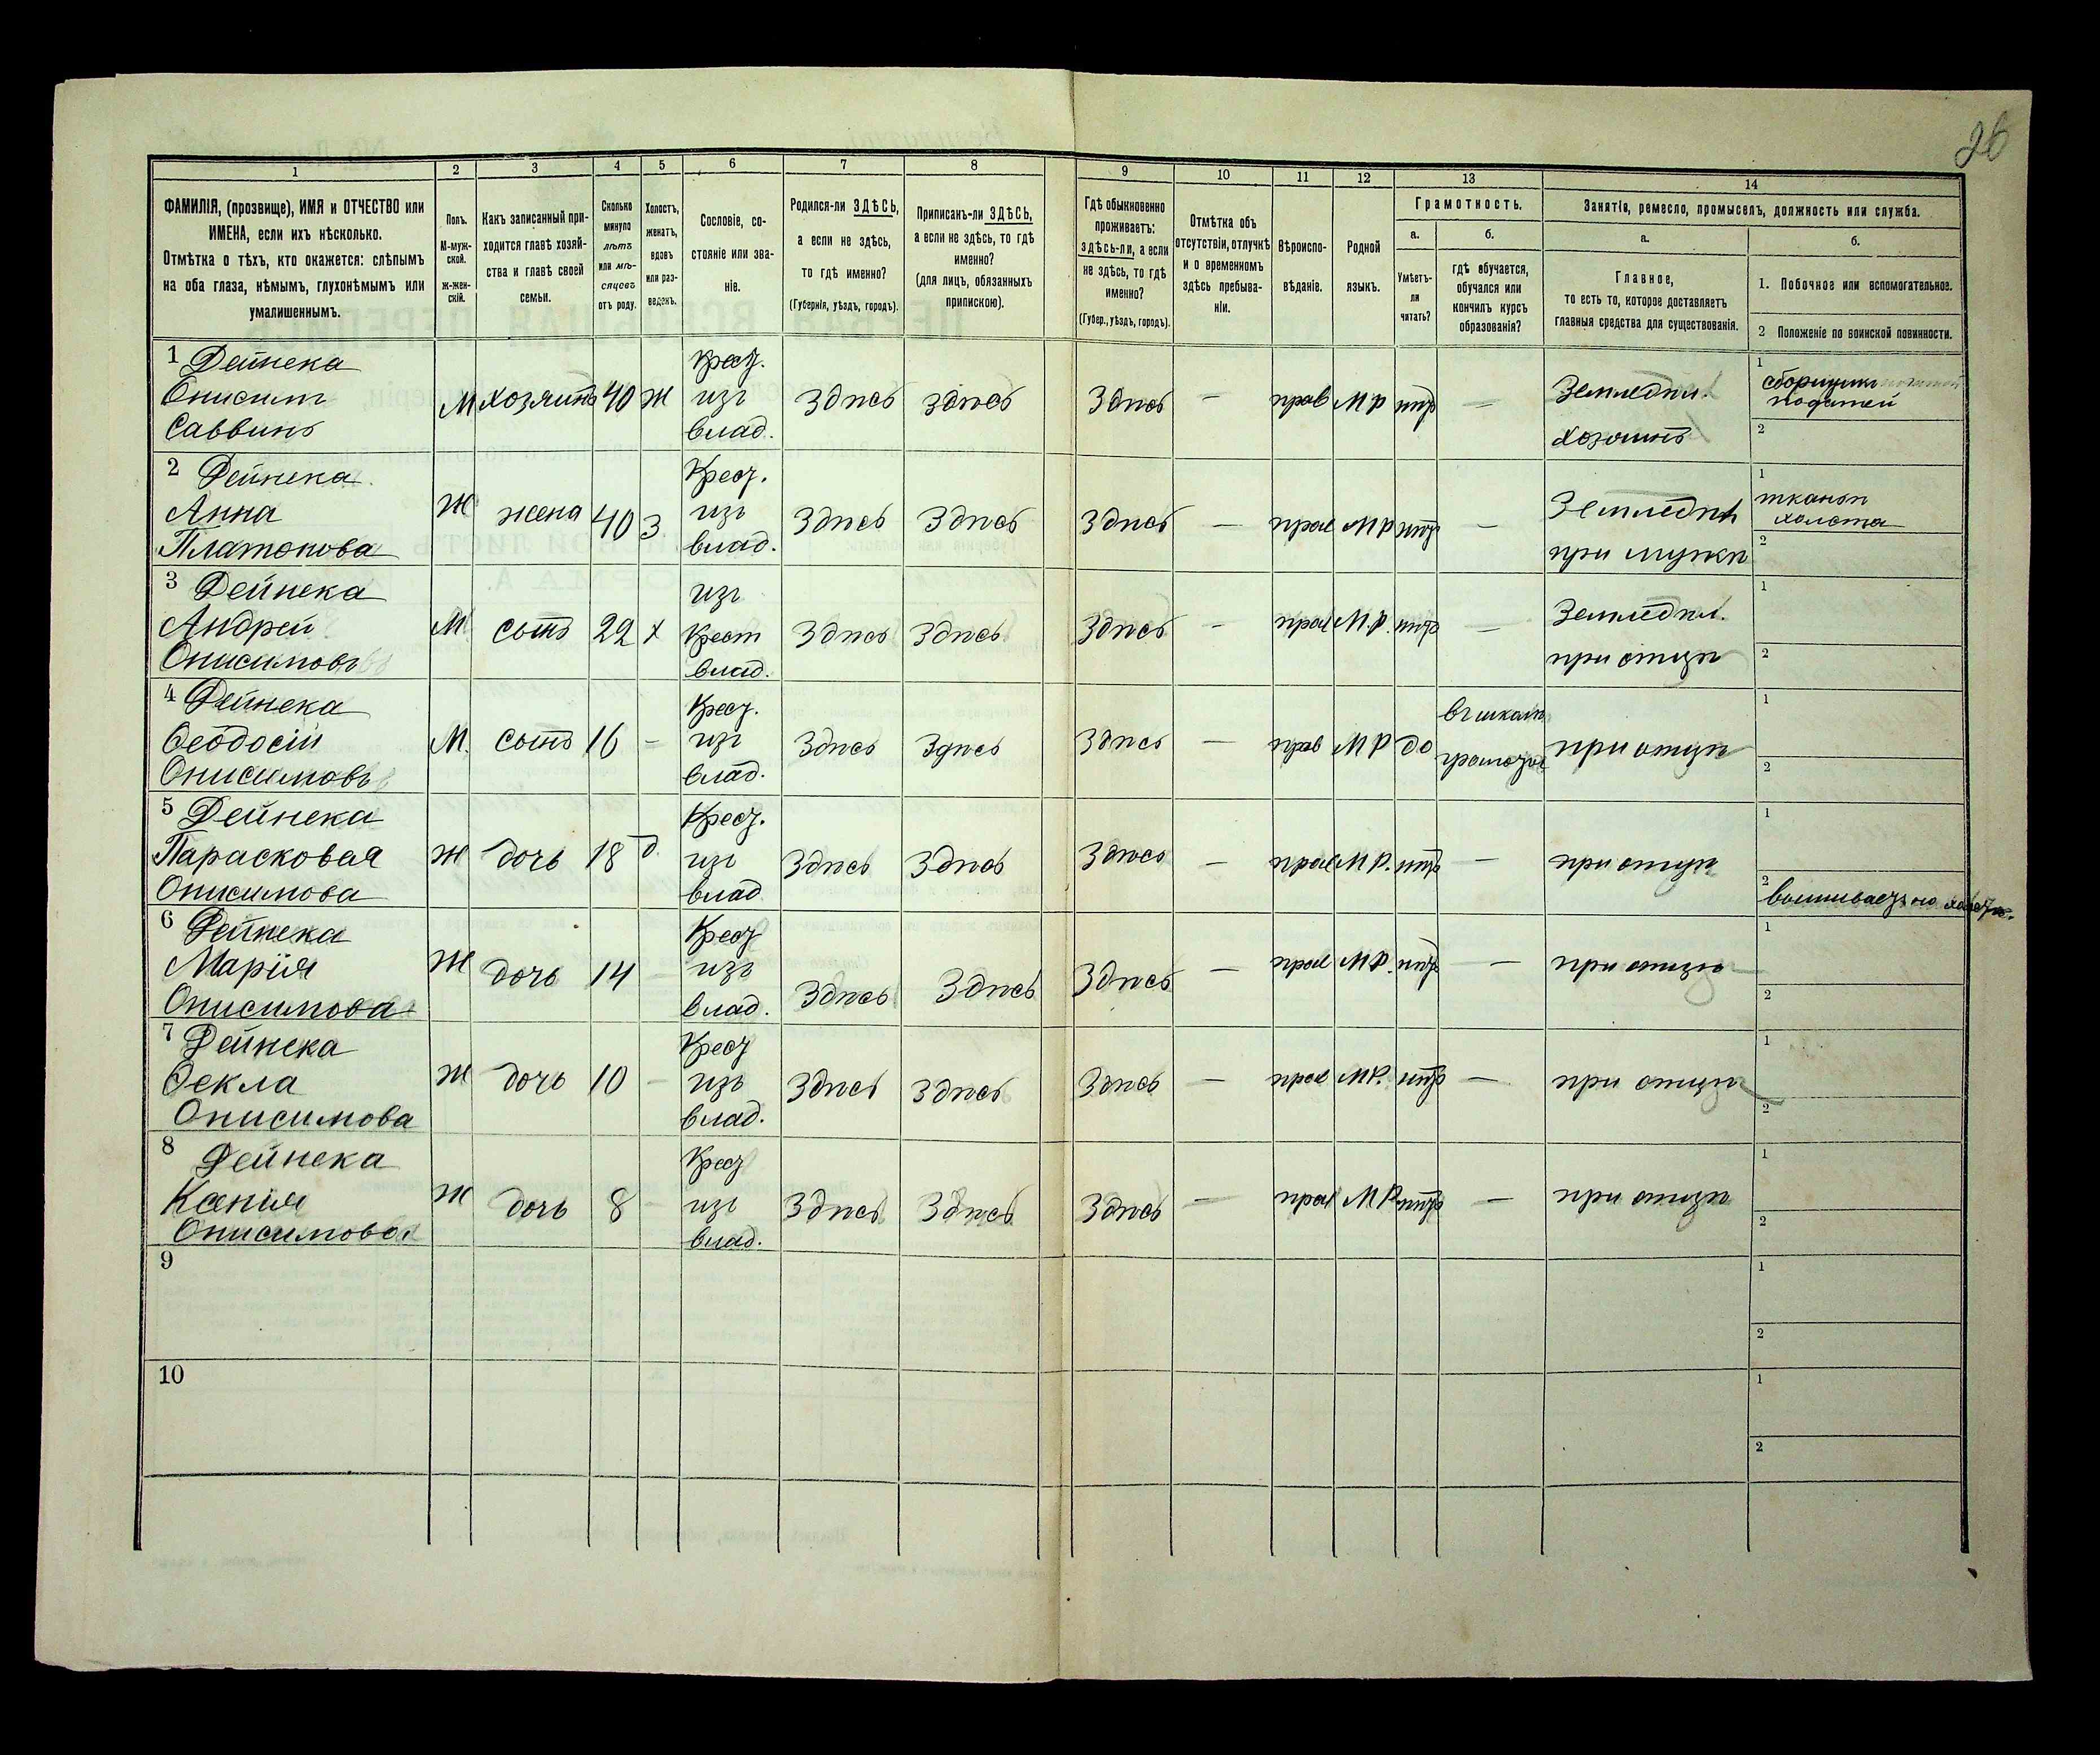 26
1 2 3 4 5 6 7 8 9 10 11 12 13 14
ФАМИЛІЯ, (прозвище), ИМЯ и ОТЧЕСТВО или
ИМЕНА, если ихъ нѣсколько.
Отмѣтка о тѣхъ, кто окажется: слѣпымъ
на оба глаза, нѣмымъ, глухонѣмымъ или
умалишеннымъ.
Полъ.
М-муж-
ской.
Ж-жен-
скій.
Какъ записанный при-
ходится главѣ хозяй-
ства и главѣ своей
семьи.
Сколько
минуло
лѣтъ
или мѣ-
сяцевъ
отъ роду.
Холостъ,
женатъ,
вдовъ
или раз-
веденъ.
Сословіе, со-
стояніе или зва-
ніе.
Родился-ли ЗДѢСЬ,
а если не здѣсь,
то гдѣ именно?
(Губернія, уѣздъ, городъ).
Приписанъ-ли ЗДѢСЬ,
а если не здѣсь, то гдѣ
именно?
(для лицъ, обязанныхъ
припискою).
Гдѣ обыкновенно
проживаетъ:
здѣсь-ли, а если
не здѣсь, то гдѣ
именно?
(Губер., уѣздъ, городъ).
Отмѣтка объ
отсутствіи, отлучкѣ
и о временномъ
здѣсь пребыва-
ніи.
Вѣроиспо-
вѣданіе.
Родной
языкъ.
Грамотность.
а.
Умѣетъ-
ли
читать?
б.
гдѣ обучается,
обучался или
кончилъ курсъ
образованія?
Занятія, ремесло, промыселъ, должность или служба.
а.
Главное,
то есть то, которое доставляетъ
главныя средства для существованія.
б.
1. Побочное или вспомогательное.
2 Положеніе по воинской повинности.
1 Дейнека
Онисимъ
Саввинъ
М хозяинъ 40 Ж
Крест.
изъ
влад.
Здѣсь Здѣсь Здѣсь — прав МР нѣтъ —
Земледѣл.
хозяинъ
1 сборщикъ
податей
2
2 Дейнека
Анна
Платонова
Ж жена 40 З
Крест.
изъ
влад.
Здѣсь Здѣсь Здѣсь — прав МР нѣтъ —
Земледѣл
при мужѣ
1
тканьѣ
холста
2
3 Дейнека
Андрей
Онисимовъ
М сынъ 22 х
изъ
Крест
влад.
Здѣсь Здѣсь Здѣсь — прав М.Р. нѣтъ —
Земледѣл.
при отцѣ
1
2
4 Дейнека
Ѳеодосій
Онисимовъ
М. сынъ 16 —
Крест.
изъ
влад.
Здѣсь Здѣсь Здѣсь — прав МР до
въ школѣ
грамоты
при отцѣ
1
2
5 Дейнека
Парасковая
Онисимова
Ж дочь 18 д.
Крест.
изъ
влад
Здѣсь Здѣсь Здѣсь — прав МР. нѣтъ — при отцѣ
1
2
вышиваетъ по холсту.
6 Дейнека
Марія
Онисимова
Ж дочь 14 —
Крест
изъ
влад.
Здѣсь Здѣсь Здѣсь — прав МР. нѣтъ — при отцѣ
1
2
7 Дейнека
Ѳекла
Онисимова
Ж дочь 10 —
Крест
изъ
влад.
Здѣсь Здѣсь Здѣсь — прав МР. нѣтъ — при отцѣ
1
2
8 Дейнека
Ксенія
Онисимова
Ж дочь 8 —
Крест
изъ
влад.
Здѣсь Здѣсь Здѣсь — прав МР нѣтъ — при отцѣ
1
2
9
1
2
10
1
2